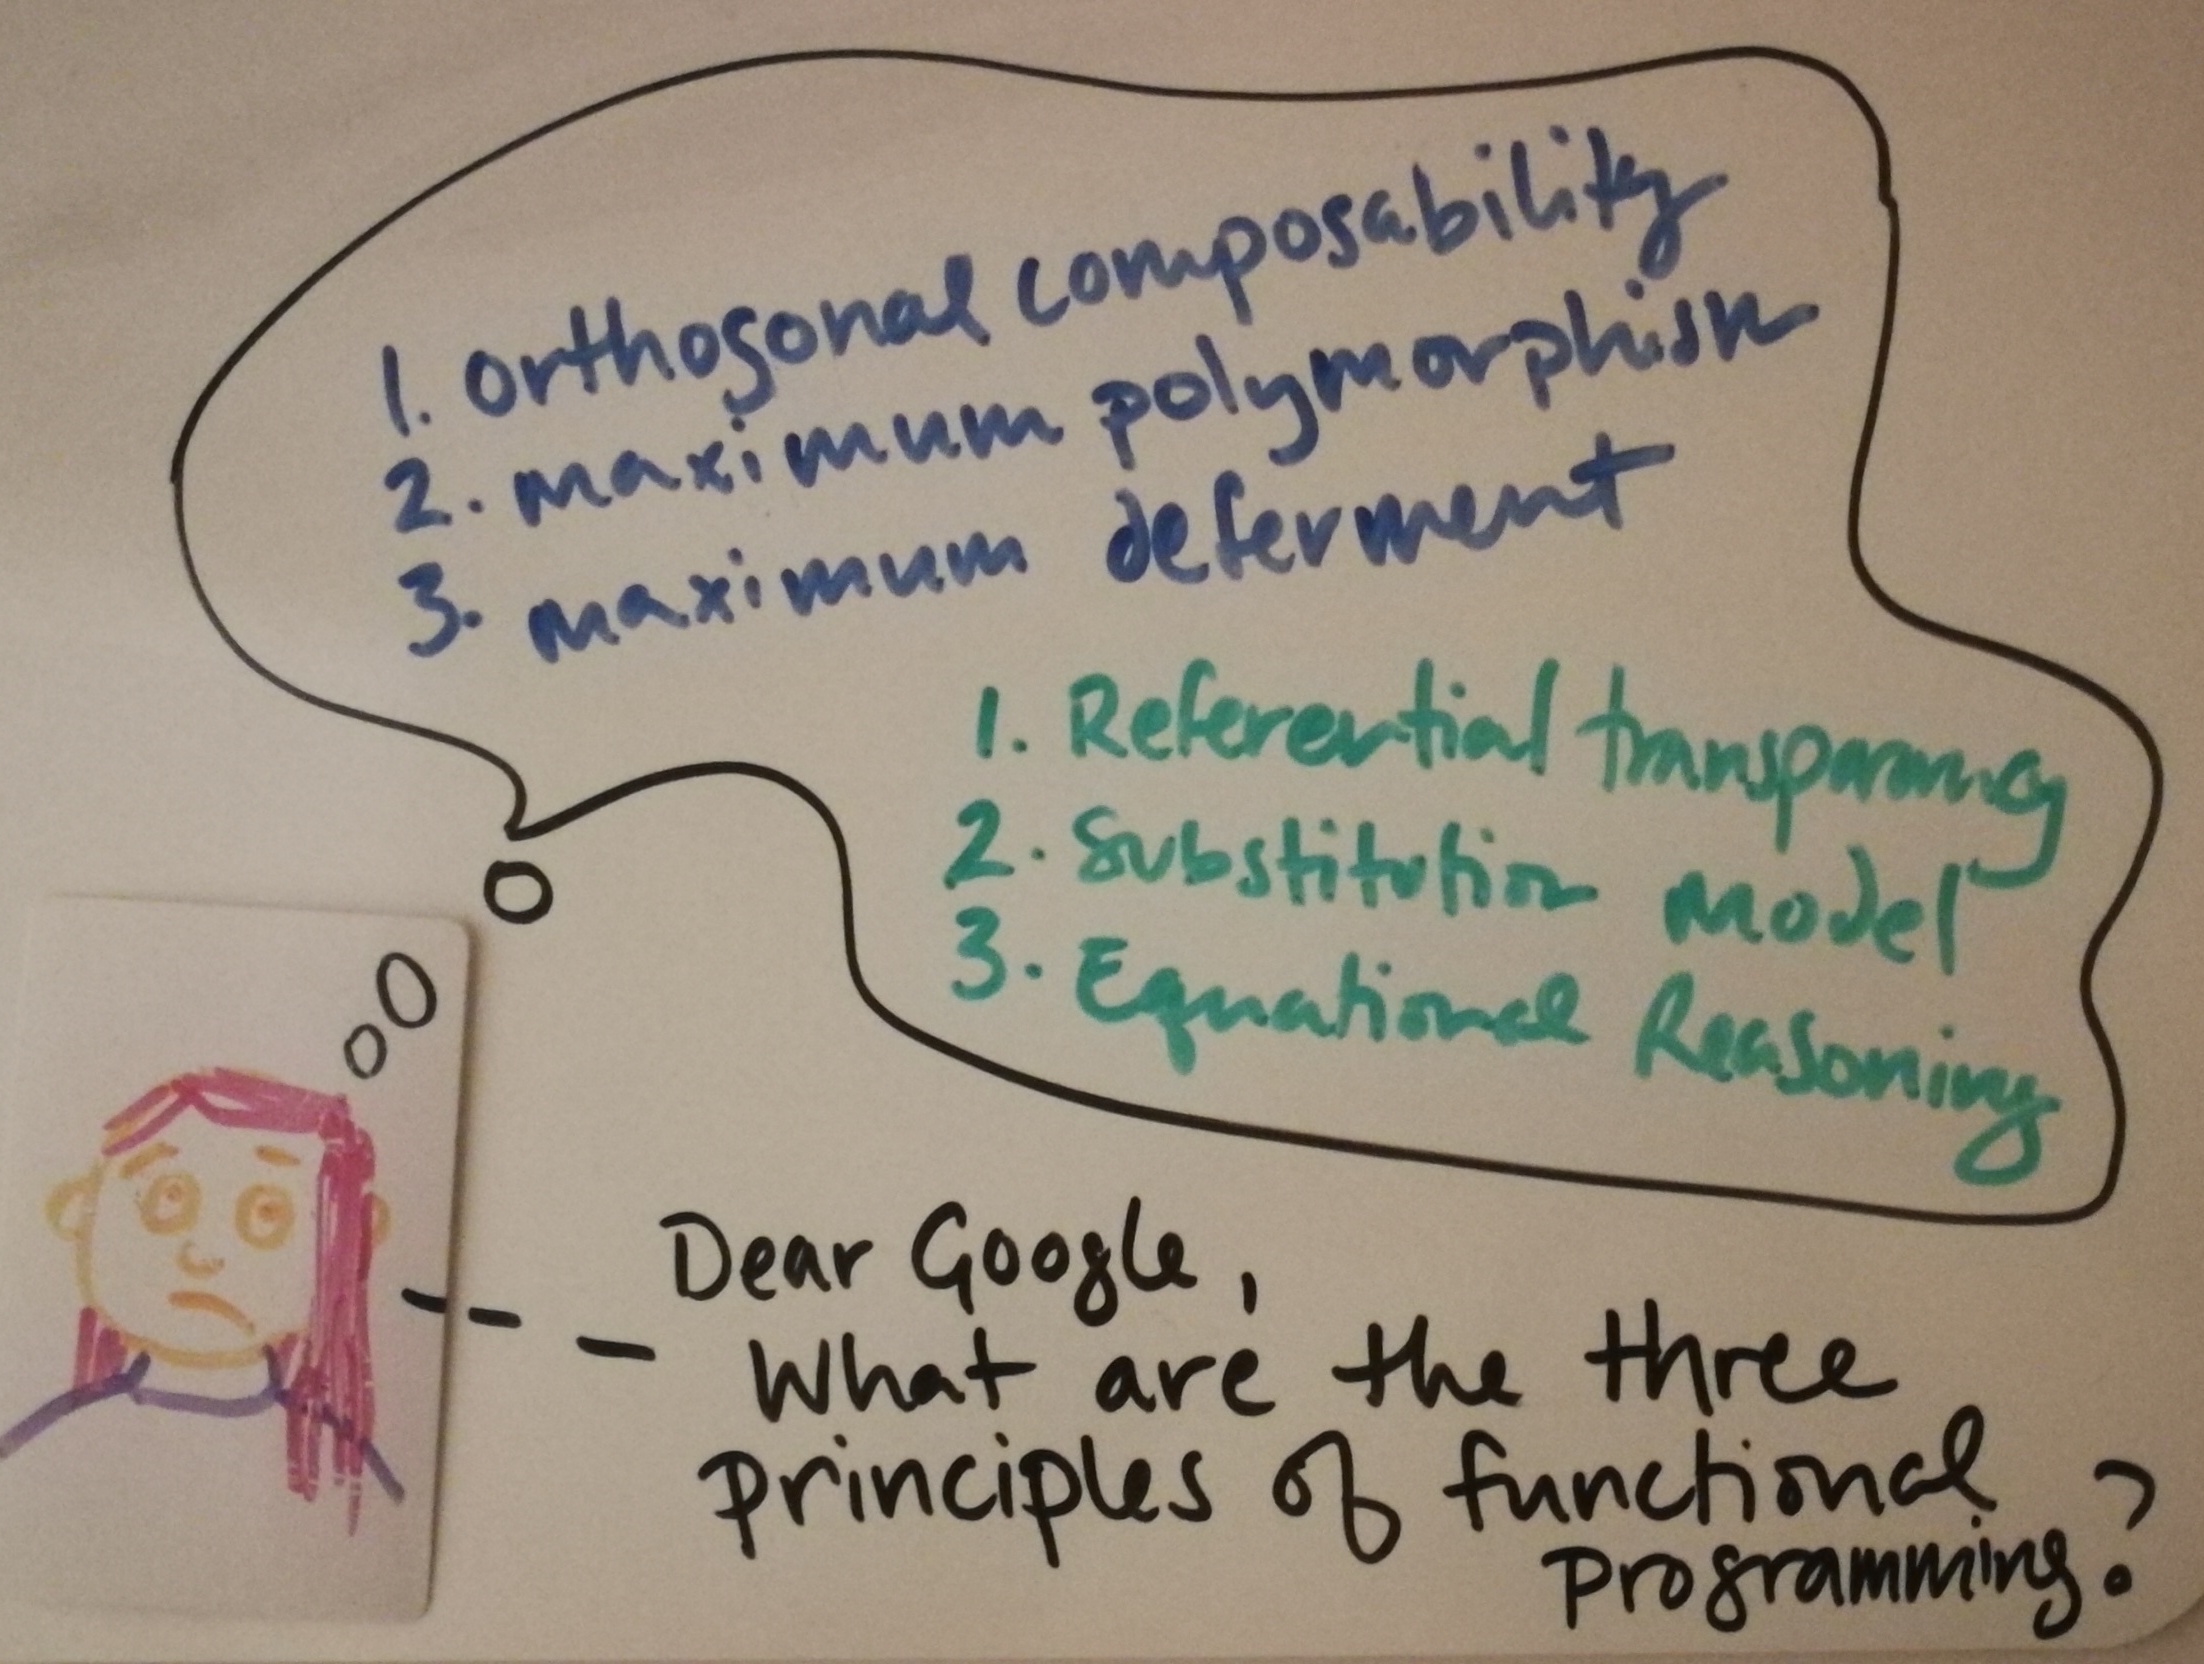 1. orthogonal composability
2. maximum polymorphism
3. maximum deferment
1. Referential transparency
2. Substitution model
3. Equational Reasoning
Dear Google,
What are the three
principles of functional
programming?